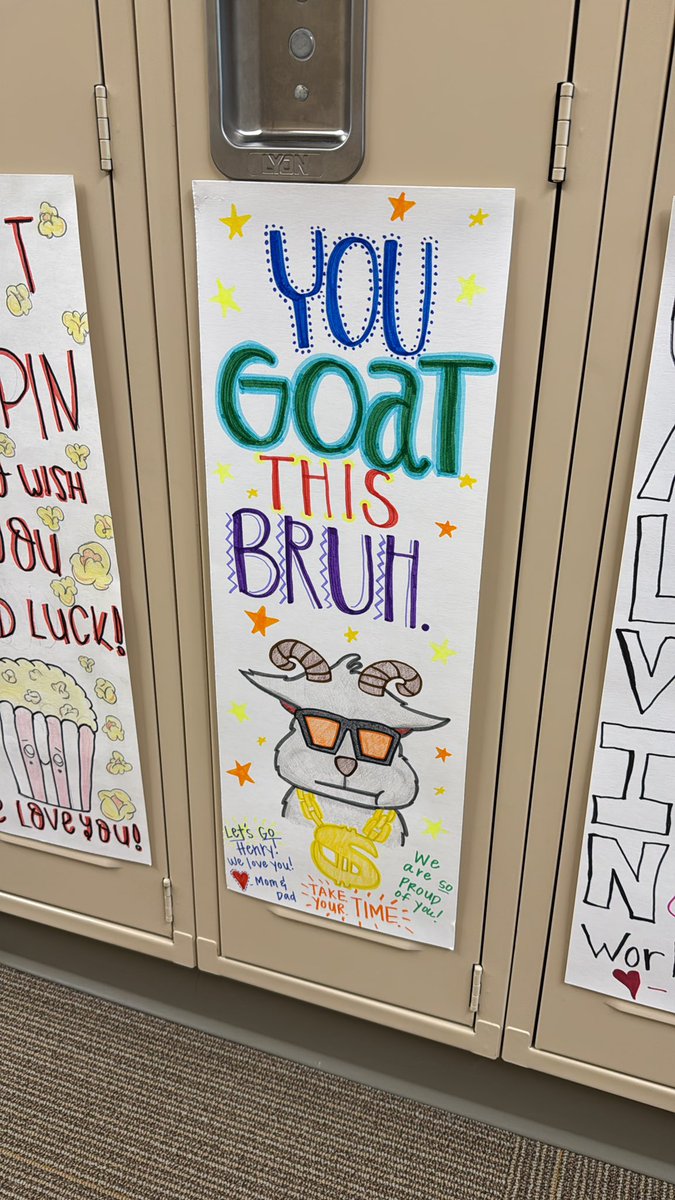 LYON
T
PIN
WISH
YOU
LUCK!
LOVE YOU!
YOU
GOAT
THIS
BRUH.
LET'S GO
Henry!
We love you!
- Mom &
Dad
TAKE
YOUR TIME
We
are so
PROUD
of you!
CALVIN